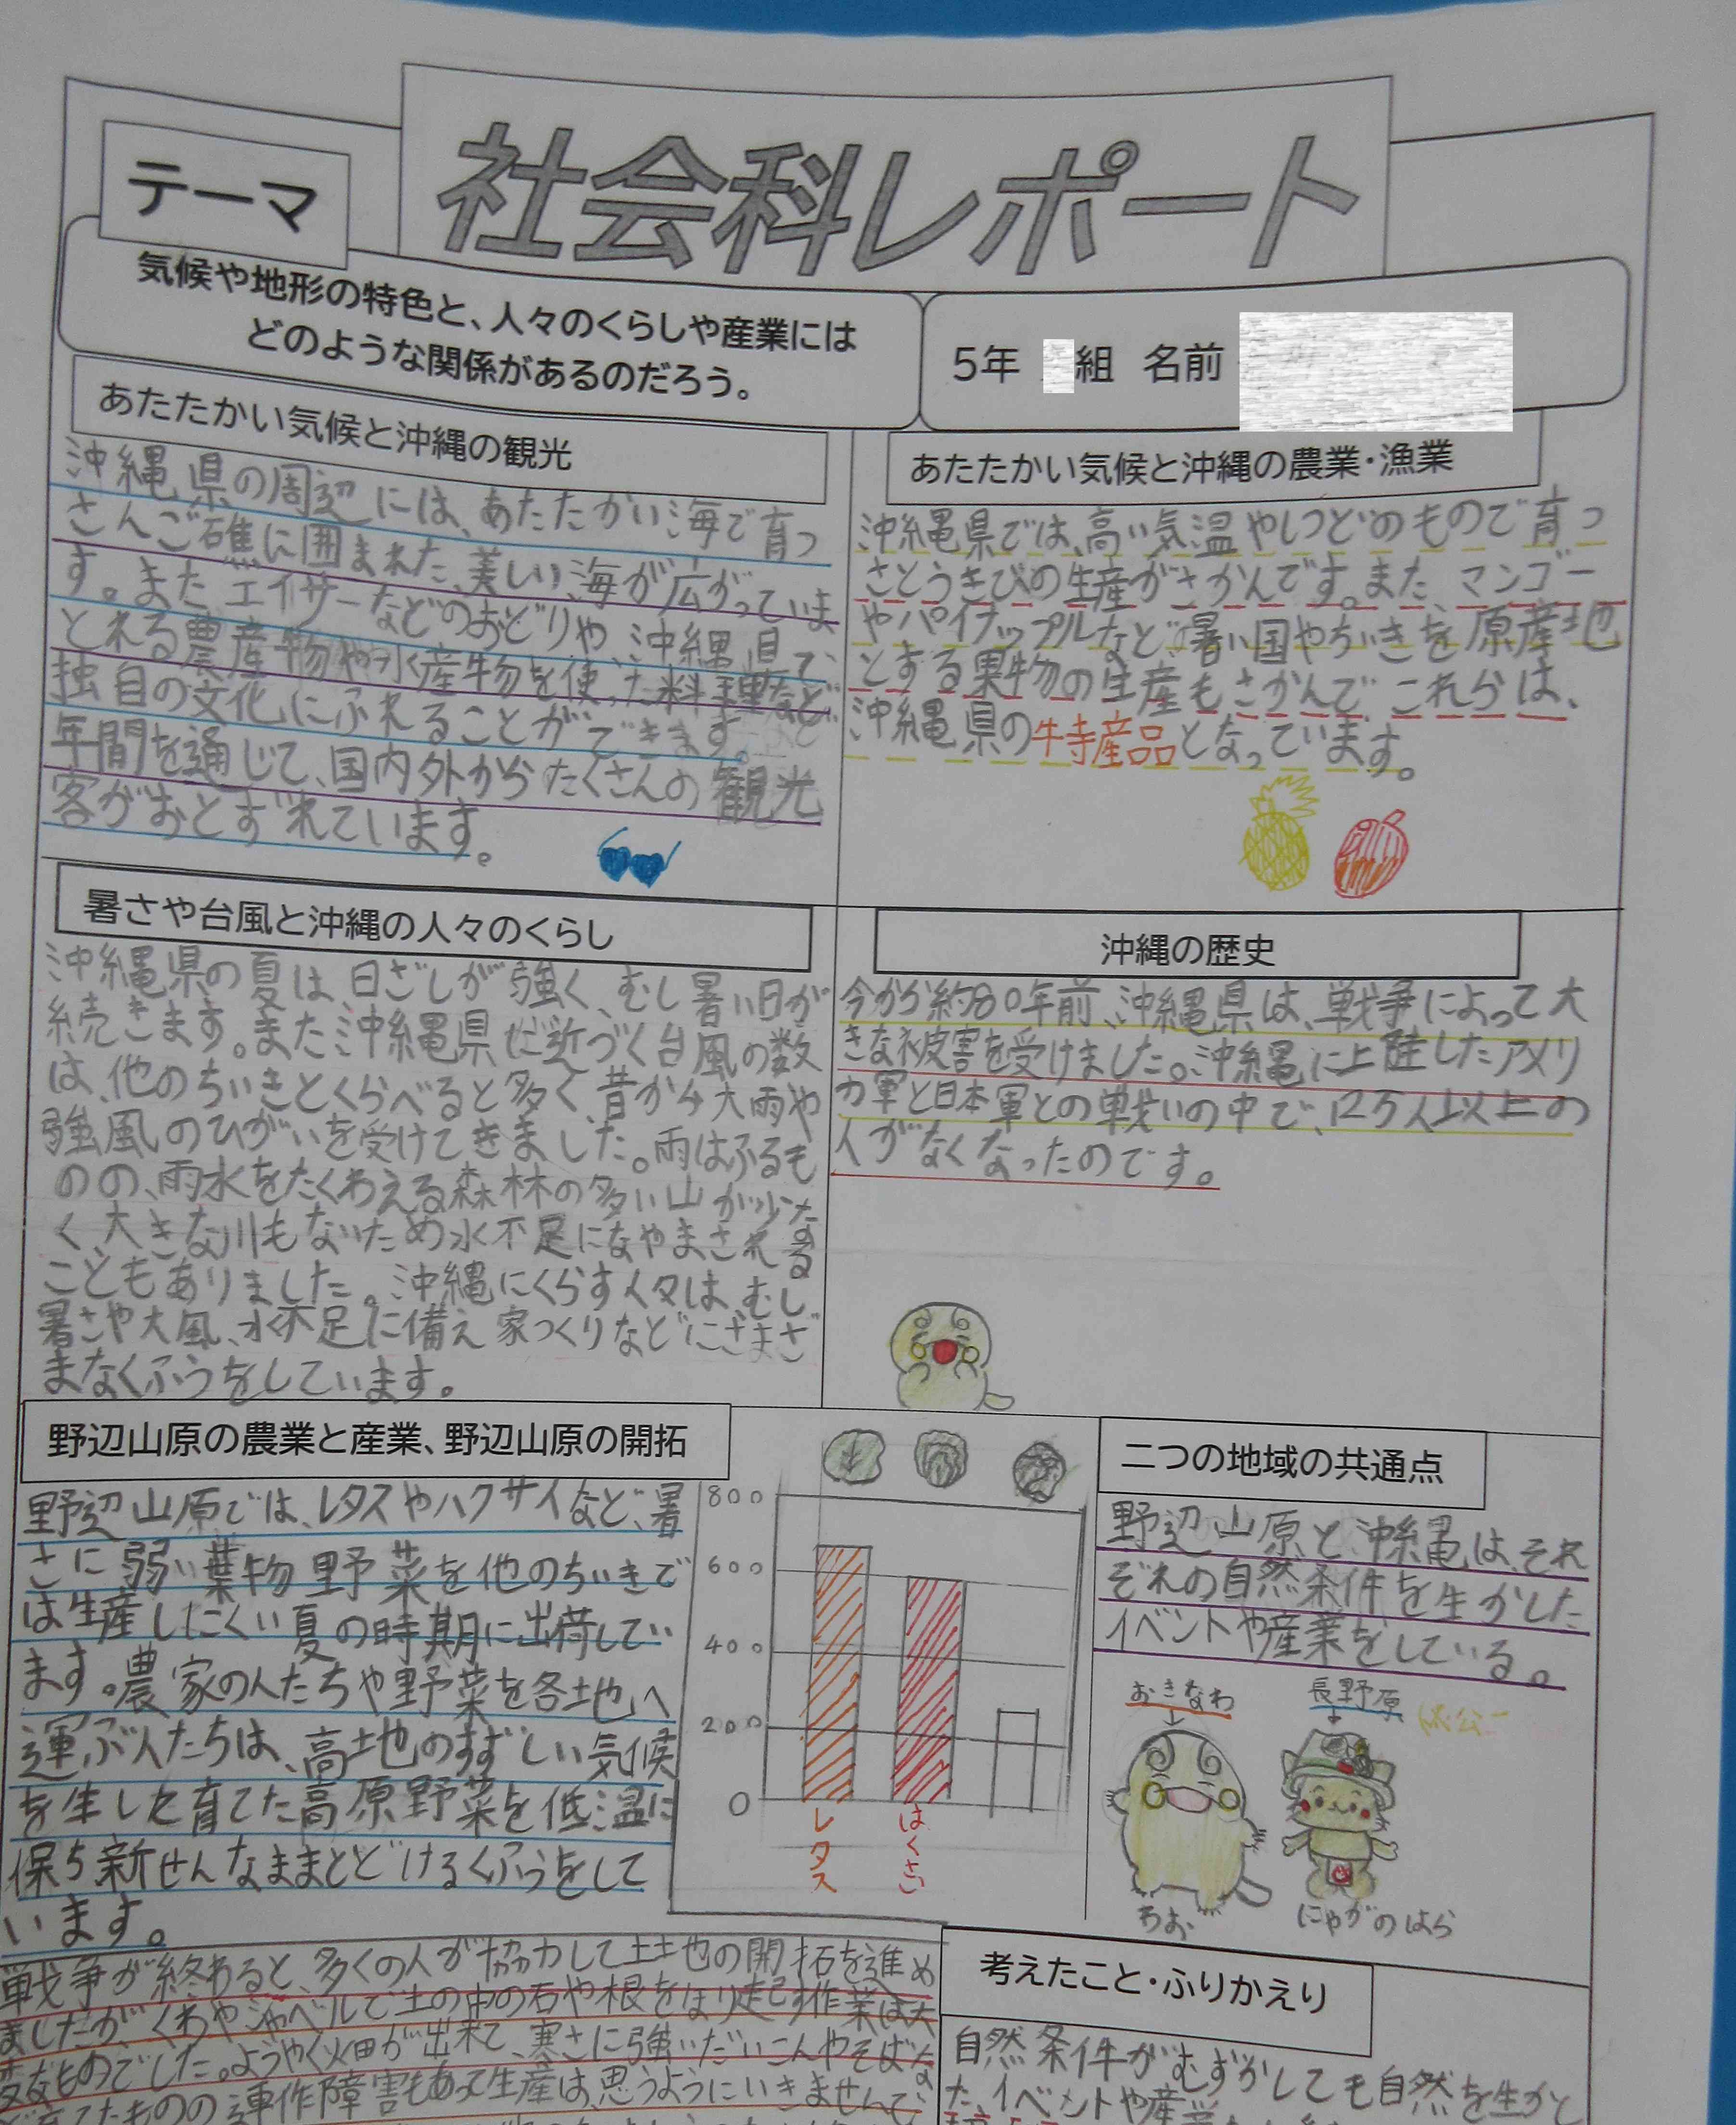 社会科レポート
テーマ
気候や地形の特色と、人々のくらしや産業には
どのような関係があるのだろう。
5年 組 名前
あたたかい気候と沖縄の観光
沖縄県の周辺には、あたたかい海で育つ
さんご礁に囲まれた、美しい海が広がっていま
す。また エイサーなどのおどりや、沖縄県で
とれる農産物や水産物を使った料理など
独自の文化にふれることができます。
年間を通じて、国内外からたくさんの観光
客がおとずれています。
あたたかい気候と沖縄の農業・漁業
沖縄県では、高い気温やしつどのもので育つ
さとうきびの生産がさかんです。また、マンゴー
やパイナップルなど、暑い国やちいきを原産地
とする果物の生産もさかんで、これらは、
沖縄県の特産品となっています。
暑さや台風と沖縄の人々のくらし
沖縄県の夏は、日ざしが強く、むし暑い日が
続きます。また沖縄県に近づく台風の数
は、他のちいきとくらべると多く、昔から大雨や
強風のひがいを受けてきました。雨はふるも
のの、雨水をたくわえる森林の多い山が少な
く、大きな川もないため水不足になやまされる
こともありました。沖縄にくらす人々は、むし
暑さや大風、水不足に備え家つくりなどにさまざ
まなくふうをしています。
沖縄の歴史
今から約80年前、沖縄県は、戦争によって大
きな被害を受けました。沖縄に上陸したアメリ
カ軍と日本軍との戦いの中で、12万人以上の
人がなくなったのです。
野辺山原の農業と産業、野辺山原の開拓
野辺山原では、レタスやハクサイなど、暑
さに弱い葉物野菜を他のちいきで
は生産しにくい夏の時期に出荷してい
ます。農家の人たちや野菜を各地へ
運ぶ人たちは、高土地のすずしい気候
を生した育てた高原野菜を低温に
保ち新せんなままとどけるくふうをして
います。
800
600
400
200
0
レタス
はくさい
二つの地域の共通点
野辺山原と沖縄は、それ
ぞれの自然条件を生かした
イベントや産業をしている。
おきなわ
長野原
ちお
にゃがのはら
戦争が終わると、多くの人が協力して土地の開拓を進め
ましたが、くわやシャベルで土の中の石や根をほり起す作業は大
変なものでした。ようやく畑が出来て、寒さに強いだいこんやそばな
ど育てたものの連作障害もあって生産は、思うようにいきませんで
考えたこと・ふりかえり
自然条件がむずかしても自然を生かし
た、イベントや産業